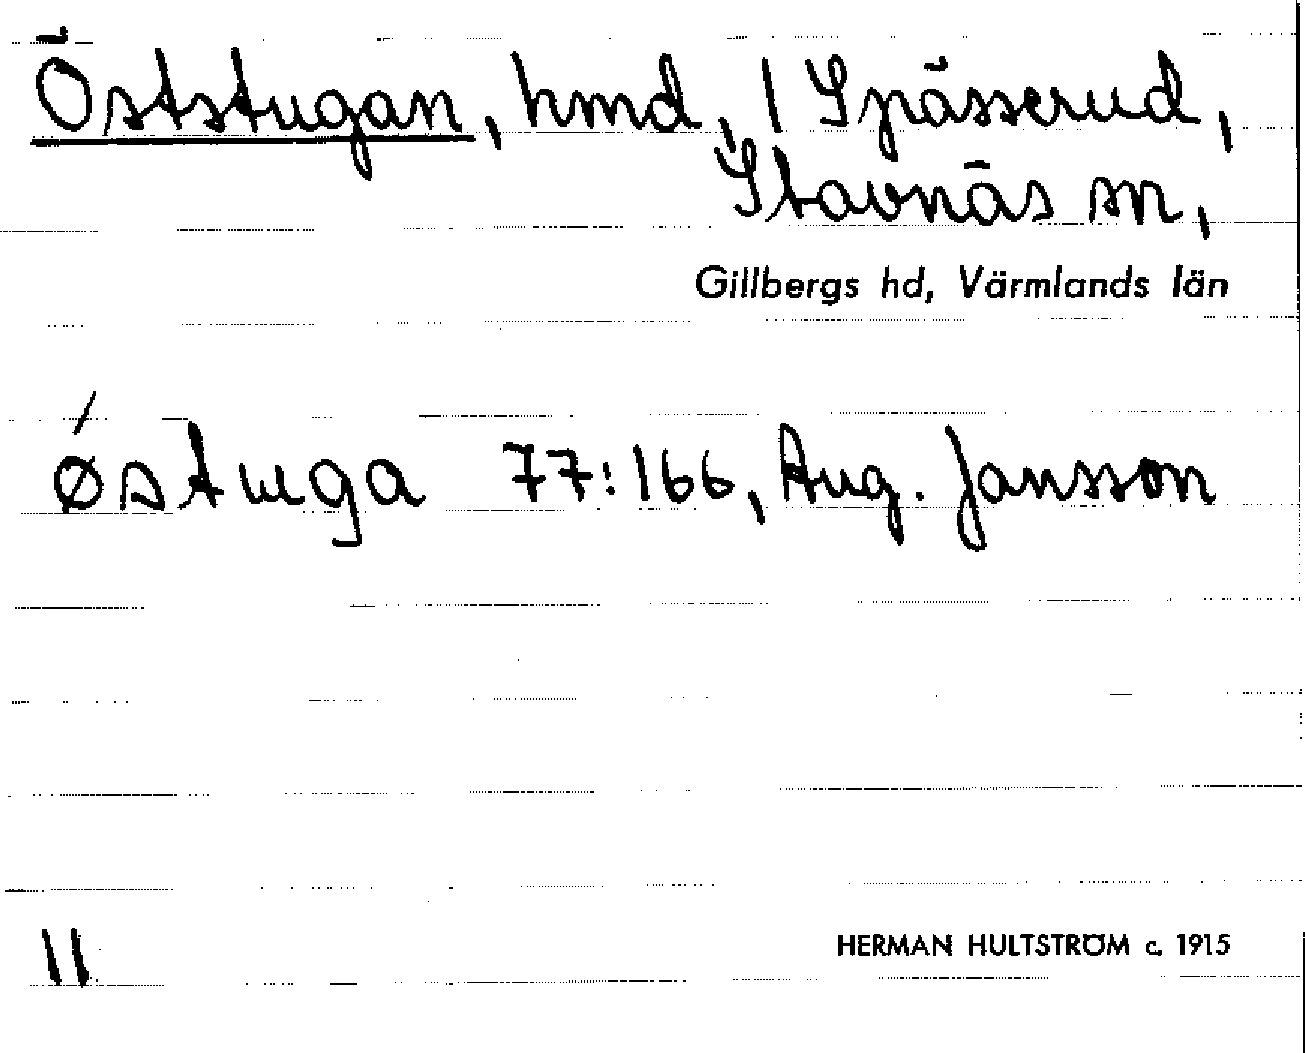 Öststugan, hmd, 1 Spässerud,
Stavnäs sn,
Gillbergs hd, Värmlands län
ǿstuga 77:166, Aug. Jansson
11
HERMAN HULTSTRÖM c. 1915